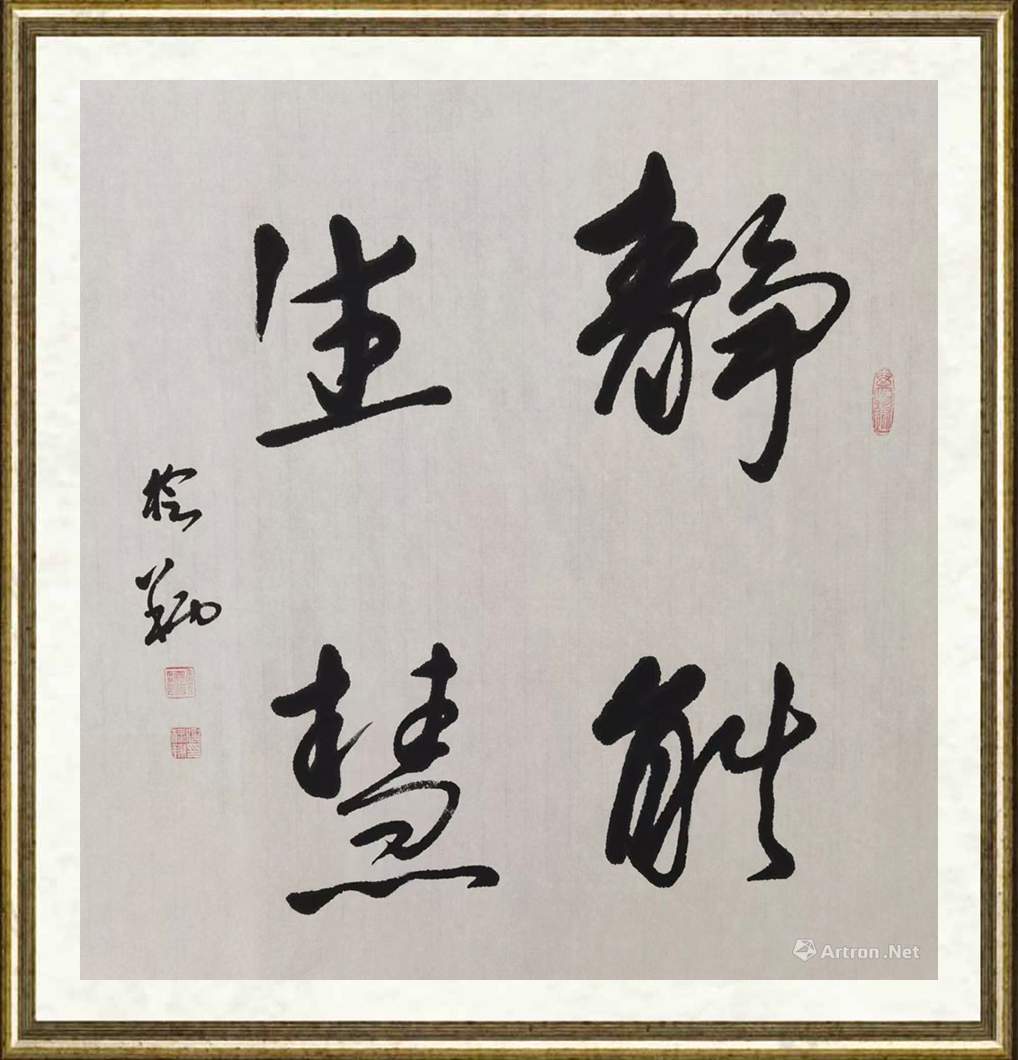 静能
生慧
Artron.Net